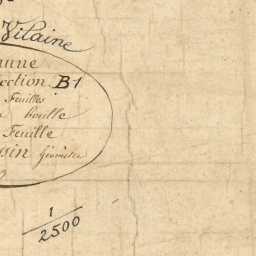 Vilaine
mune
ection B1
Feuilles
boulle
Feuille
sin Géomètre
1
2500